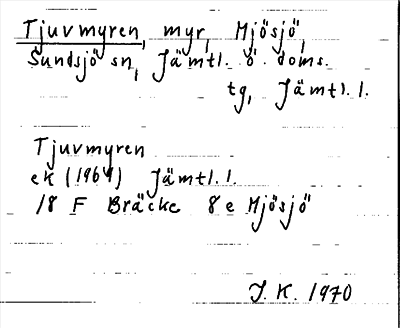 Tjuvmyren, myr, Mjösjö,
Sundsjö sn, Jämtl. ö. doms.
tg, Jämtl. l.
Tjuvmyren
ek (1964) Jämtl. l.
18 F Bräcke 8 e Mjösjö
J. K. 1970